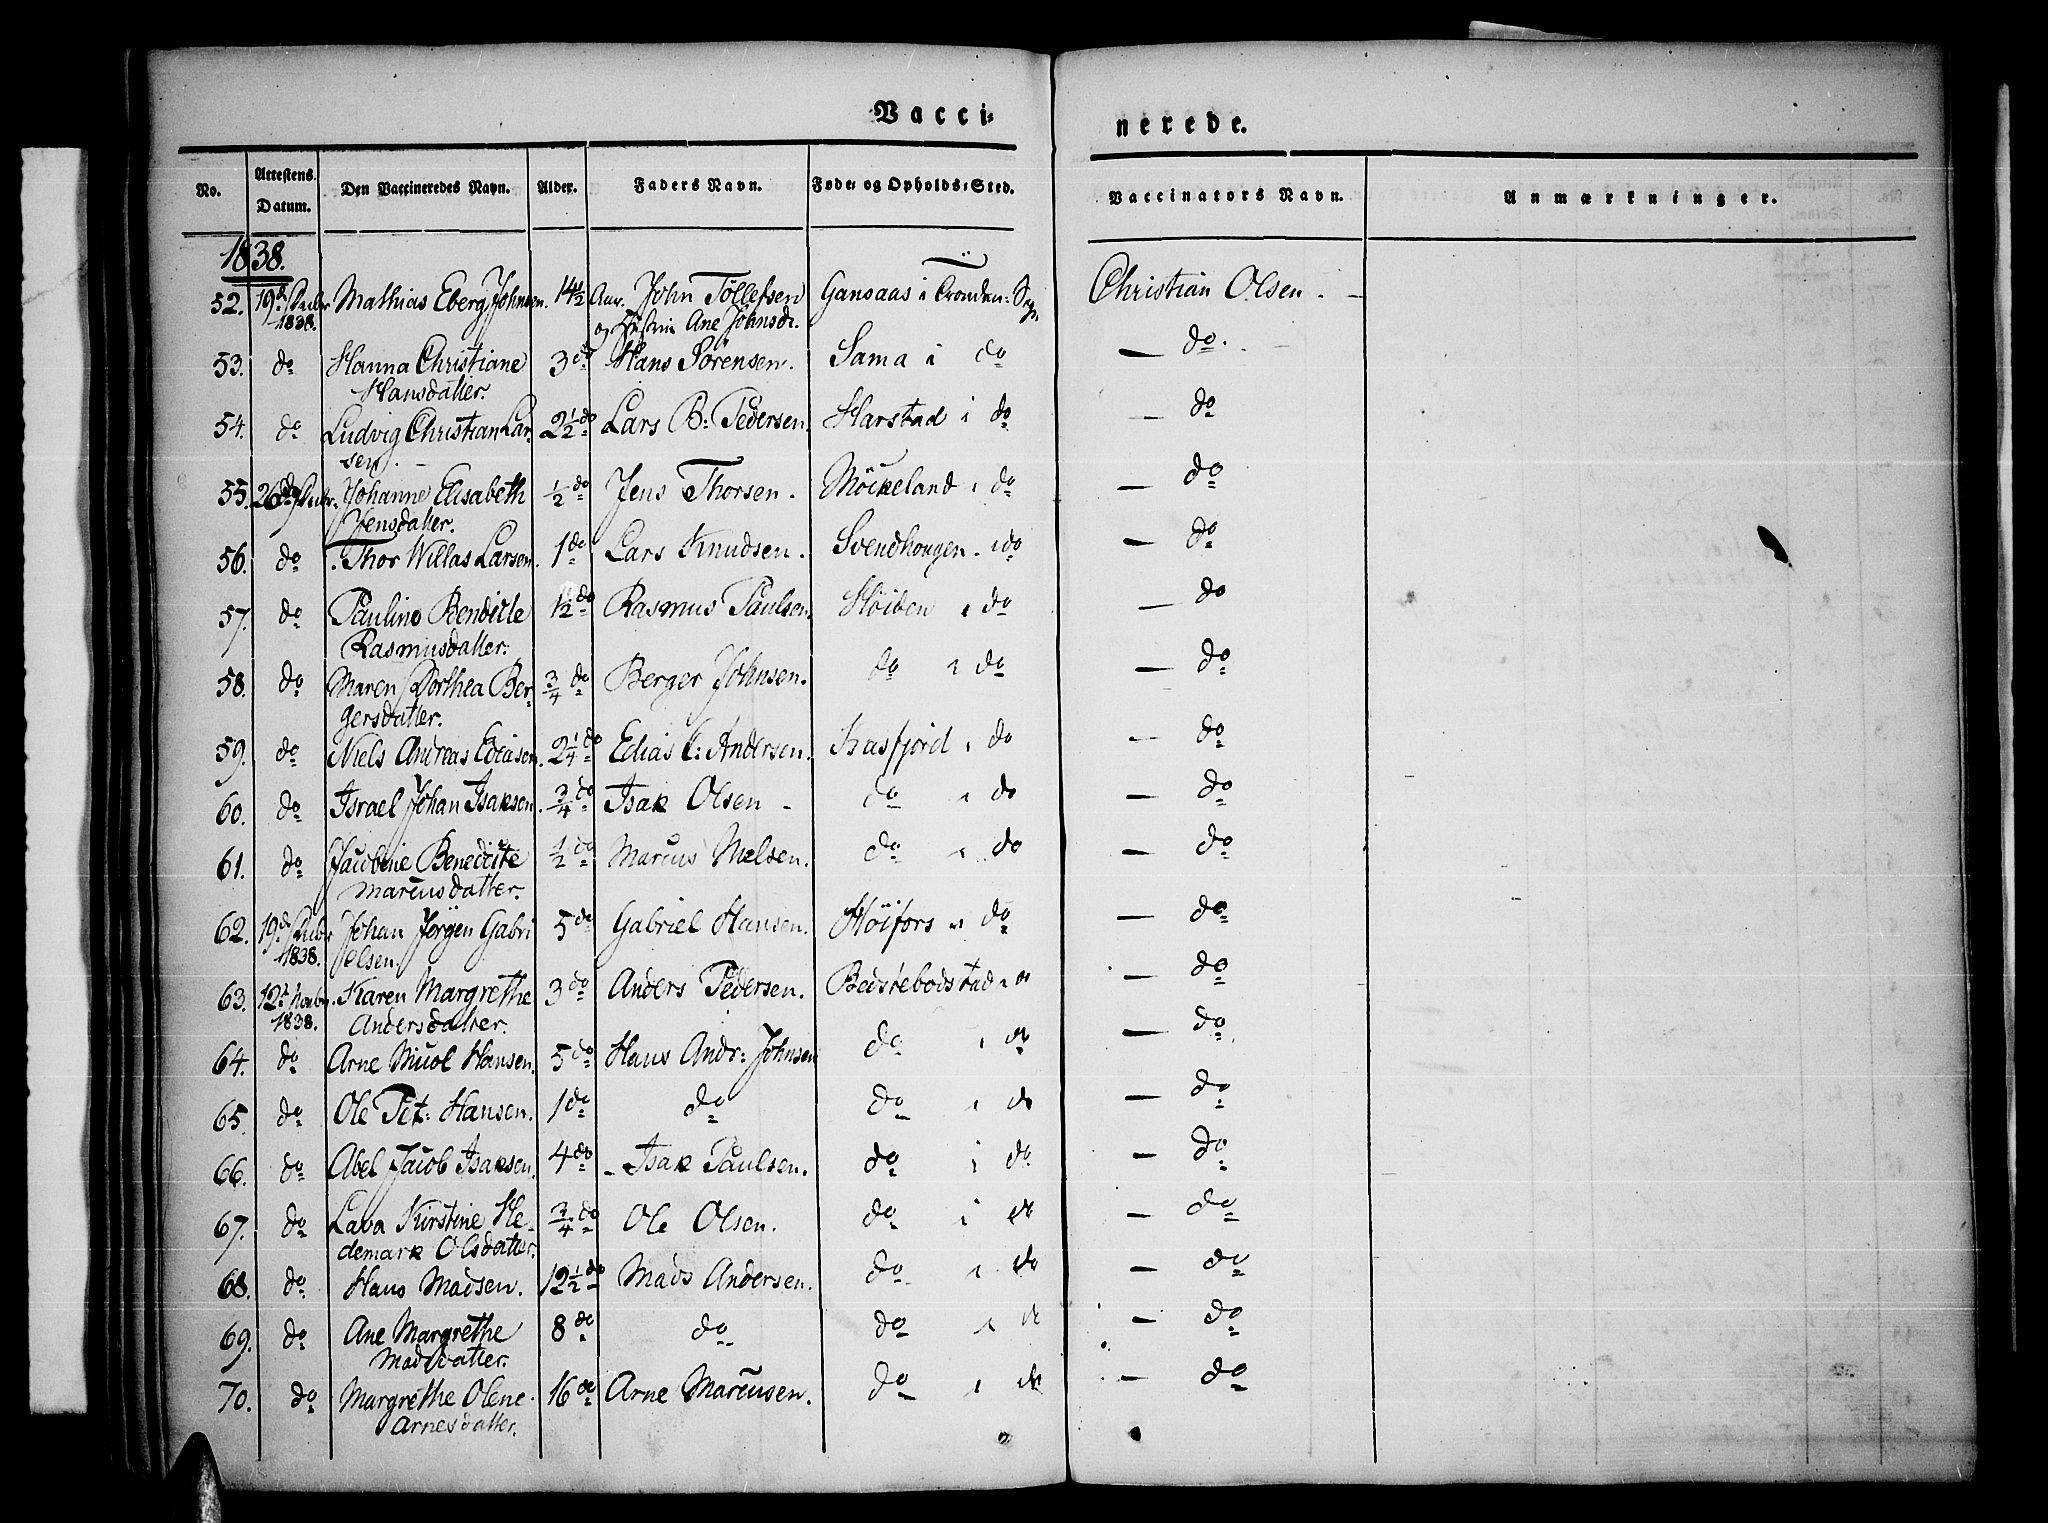 Vacci=
nerede.
No. Attestens Datum. Den Vaccineredes Navn. Alder. Faders Navn. Føde= og Opholds=Sted. Vaccinators Navn. Anmærkninger.
1838.
52. 19d 1838. Mathias Eberg Johnsen. 14½ Aar. John Tøllefsen Gansaas i Tronden: Christian Olsen. —
og Hustrue Ane Johnsdr.
53. do Hanna Christiane 3 do Hans Sørensen. Sama i do — do.
Hansdatter.
54. do Ludvig Christian Lar= 2½ do Lars B: Pedersen. Harstad i do — do
sen. —
55. 26de Johanne Elisabeth ½ do Jens Thorsen. Möckeland i do — do
Jensdatter.
56. do Thor Willas Larsen. 1 do Lars Knudsen. Svendhougen. i do — do
57. do Pauline Bendicte 1½ do Rasmus Paulsen. Høiden i do — do
Rasmusdatter.
58. do Maren Dorthea Ber= ¾ do Berger Johnsen. do i do — do
gersdatter.
59. do Niels Andreas Ediasen. 2¼ do Edias C: Andersen. Kasfjord i do — do
60. do Israel Johan Isaksen. ¾ do Isak Olsen — do i do — do
61. do Jacobine Benedicte ½ do Marcus Nielsen. do i do — do
Marcusdatter.
62. 19d 1838. Johan Jørgen Gabri 5 do Gabriel Hansen. Høifors i do — do
elsen.
63. 12t Novbr. 1838. Karen Margrethe 3 do Anders Pedersen. — do
Andersdatter.
64. do Arne Hansen. 5 do Hans Andr: Johnsen do i do — do
65. do Ole Pet: Hansen. 1 do do do i do — do
66. do Abel Jacob Isaksen. 4 do Isak Paulsen. do i do — do
67. do Lava Kirstine He= ¾ do Ole Olsen. do i do — do
demark Olsdatter.
68. do Hans Madsen. 12½ do Mads Andersen. do i do — do
69. do Ane Margrethe 8 do do do i do — do
Madsdatter.
70. do Margrethe Olene 16 do Arne Marcusen. do i do — do
Arnesdatter.